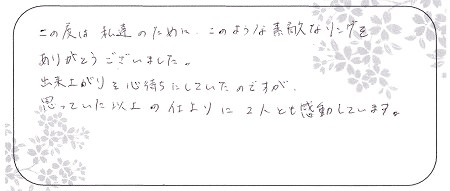 この度は私達のために、このような素敵なリングを
ありがとうございました。
出来上がりを心待ちにしていたのですが、
思っていた以上の仕上りに2人とも感動しています。